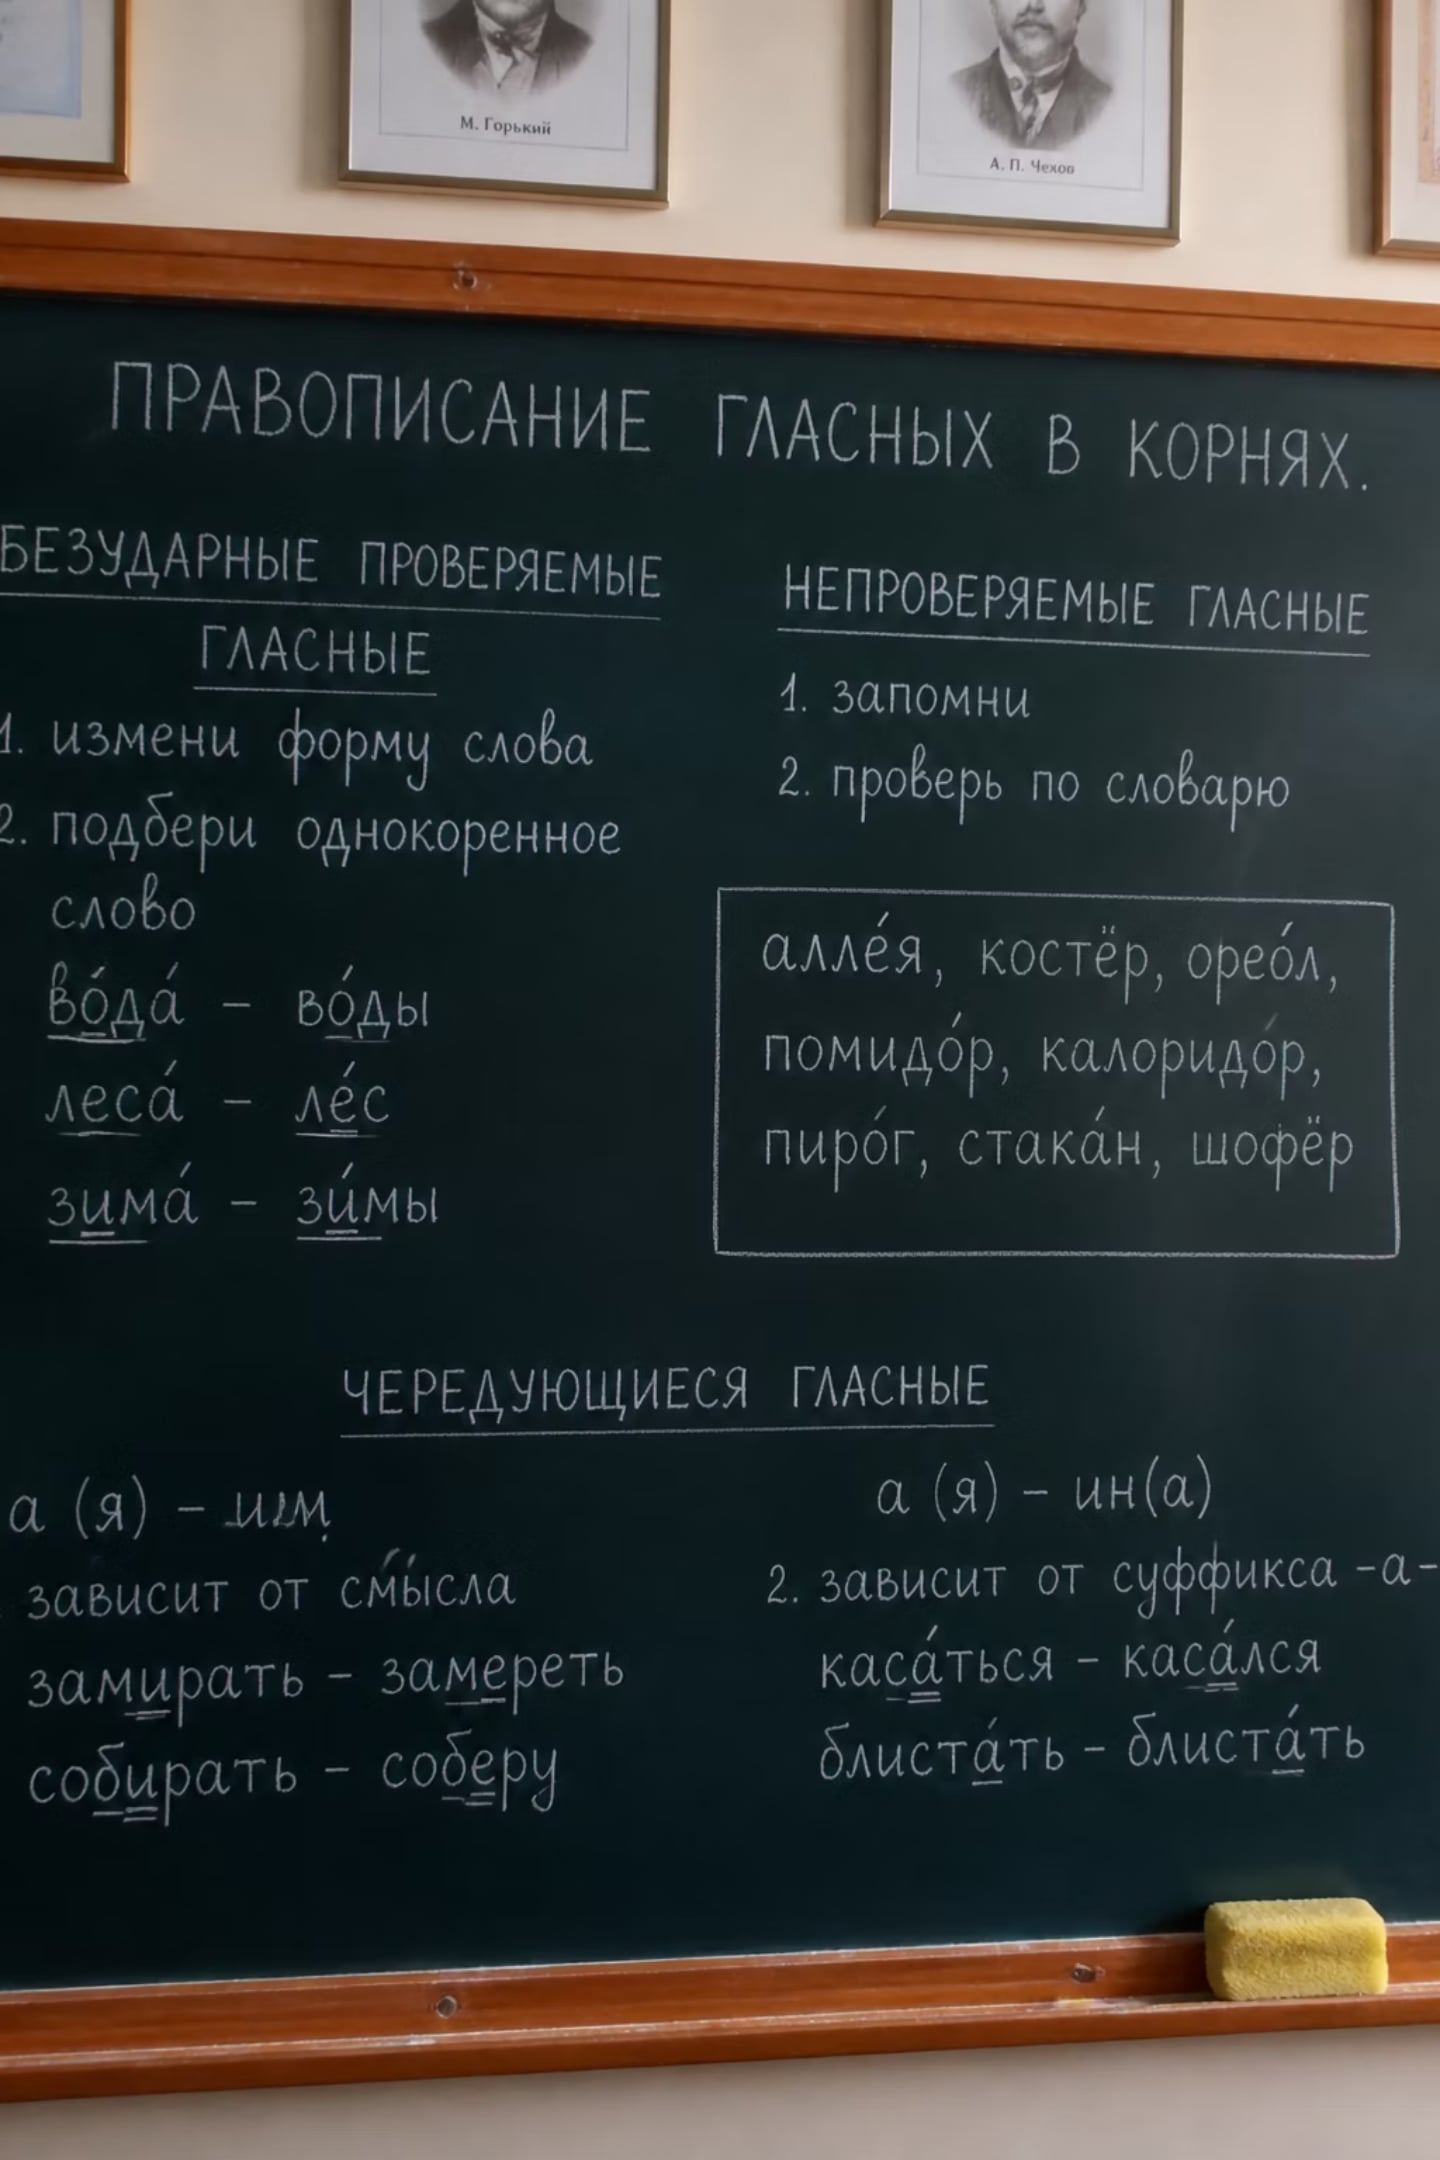 М. Горький
А. П. Чехов
ПРАВОПИСАНИЕ ГЛАСНЫХ В КОРНЯХ.
БЕЗУДАРНЫЕ ПРОВЕРЯЕМЫЕ
ГЛАСНЫЕ
1. измени форму слова
2. подбери однокоренное
слово
во́да́ – во́ды
леса́ – ле́с
зима́ – зи́мы
НЕПРОВЕРЯЕМЫЕ ГЛАСНЫЕ
1. запомни
2. проверь по словарю
алле́я, костёр, орео́л,
помидо́р, калоридо́р,
пиро́г, стака́н, шофёр
ЧЕРЕДУЮЩИЕСЯ ГЛАСНЫЕ
а (я) –
зависит от смы́сла
замирать – замереть
собирать – соберу
а (я) – ин(а)
2. зависит от суффикса -а-
каса́ться – каса́лся
блиста́ть – блиста́ть